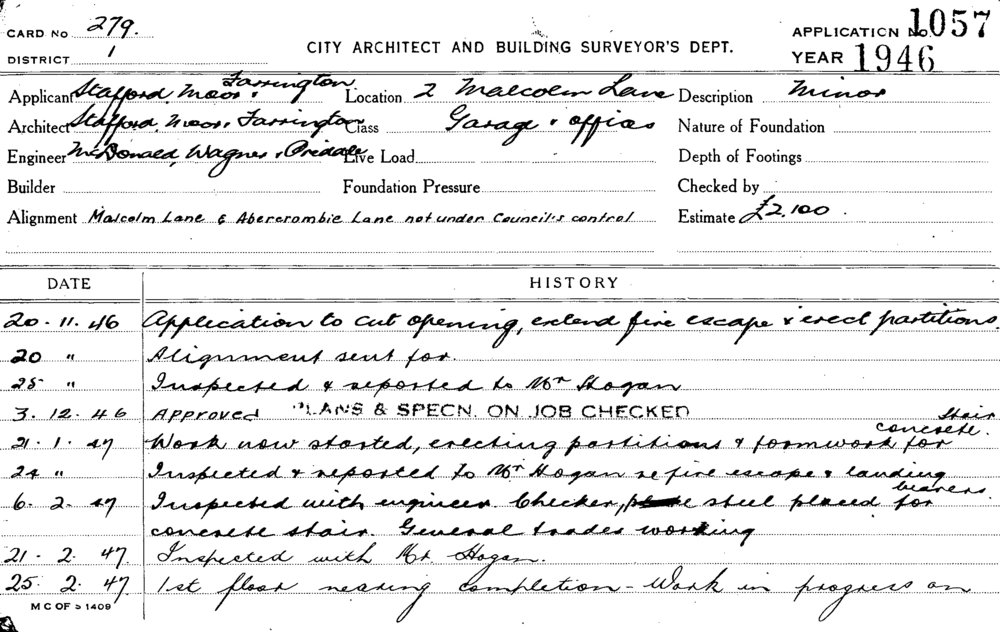 CARD No 279.
DISTRICT 1
CITY ARCHITECT AND BUILDING SURVEYOR'S DEPT.
APPLICATION No. 1057
YEAR 1946
Applicant Stafford, Moor & Farrington
Location 2 Malcolm Lane
Description Minor
Architect Stafford, Moor & Farrington
Class Garage & offices
Nature of Foundation
Engineer McDonald, Wagner & Priddle
Live Load
Depth of Footings
Builder
Foundation Pressure
Checked by
Alignment Malcolm Lane & Abercrombie Lane not under Council's control
Estimate £2,100.
DATE HISTORY
20. 11. 46 Application to cut opening, extend fire escape & erect partitions.
20 " Alignment sent for.
25 " Inspected & reported to Mr Hogan
3. 12. 46 Approved PLANS & SPECN. ON JOB CHECKED
21. 1. 47 Work now started, erecting partitions & formwork for concrete stair.
24 " Inspected & reported to Mr Hogan re fire escape & landing
6. 2. 47 Inspected with engineer. Checker, steel placed for bearers.
concrete stair. General trades working
21. 2. 47. Inspected with Mr. Hogan.
25. 2. 47. 1st floor nearing completion - Work in progress on
M C OF S 1409